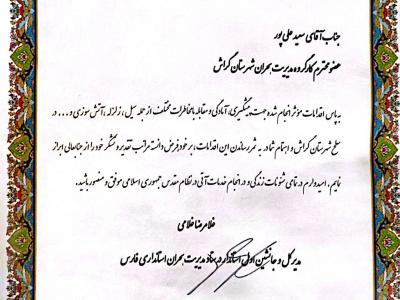 جناب آقای سعید علی پور
عضو محترم کارگروه مدیریت بحران شهرستان گراش
به پاس اقدامات مؤثر انجام شده جهت پیشگیری، آمادگی و مقابله با مخاطرات مختلف از جمله سیل، زلزله، آتش سوزی و ... در
سطح شهرستان گراش و اهتمام شما در به ثمر رساندن این اقدامات، بر خود فرض دانسته مراتب تقدیر و تشکر خود را از جنابعالی ابراز
نمایم. امیدوارم در تمامی شئونات زندگی و در انجام خدمات آتی در نظام مقدس جمهوری اسلامی موفق و منصور باشید.
غلامرضا غلامی
مدیرکل و جانشین اول استاندار در ستاد مدیریت بحران استانداری فارس